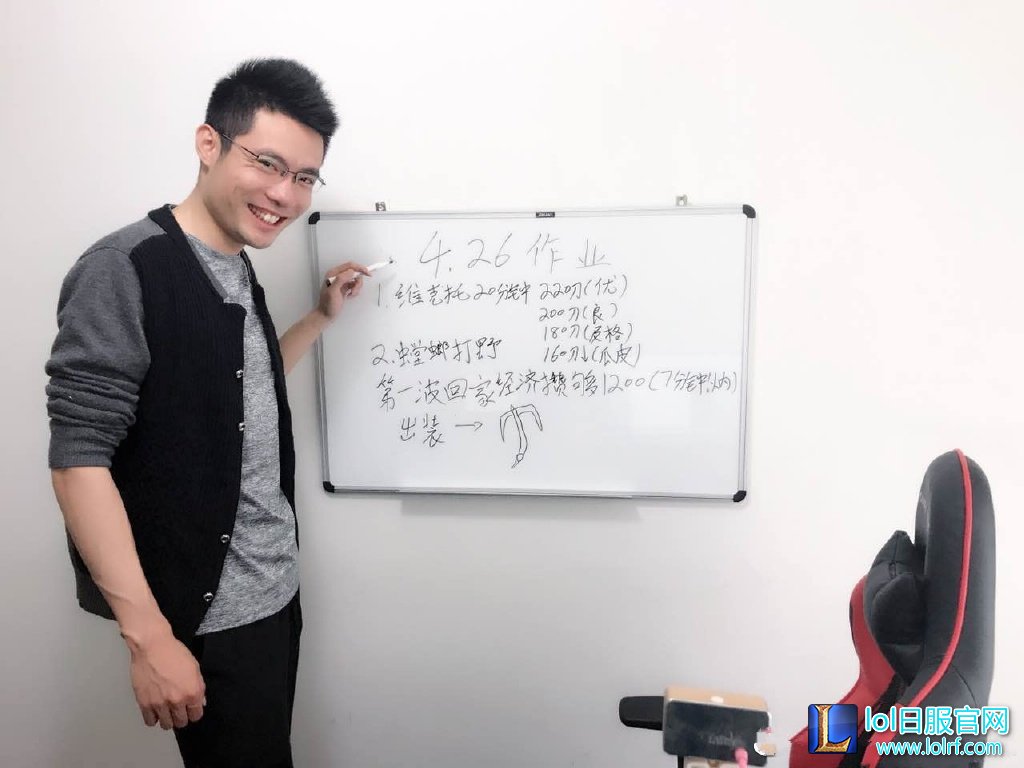 4.26 作业
1.维克托 20分钟 220刀(优)
200刀(良)
180刀(及格)
160刀↓(瓜皮)
2.螳螂打野
第一波回家经济攒够1200(7分钟内)
出装 →
lol日服官网
www.lolrf.com